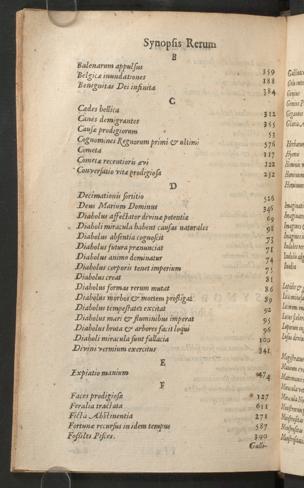 Synopsis Rerum
B
Balenarum appulsus 359
Belgicæ inundationes 188
Benegnitas Dei infinita 384
C
Cædes bellica 312
Canes demigrantes 355
Causæ prodigiorum 53
Cognomines Regnorum primi & ultimi 576
Cometa 117
Cometæ recentioris ævi 122
Conversatio vitæ prodigiosa 232
D
Decimationis sortitio 526
Deus Marium Dominus 346
Diabolus affectator divinæ potentiæ 69
Diaboli miracula habent causas naturales 98
Diabolus absentia cognoscit 73
Diabolus futura prænunciat 71
Diabolus animo dominatur 74
Diabolus corporis tenet imperium 75
Diabolus creat 81
Diabolus formas rerum mutat 86
Diabolus morbos & mortem profligat 89
Diabolus tempestates excitat 92
Diabolus mari & fluminibus imperat 95
Diabolus bruta & arbores facit loqui 96
Diaboli miracula sunt fallacia 100
Divini vermium exercitus 341
E
Expiatio manium 474
F
Faces prodigiosæ 127
Feralia tractata 611
Ficta Abstinentia 271
Fortunæ recursus in idem tempus 587
Fossiles Pisces. 390